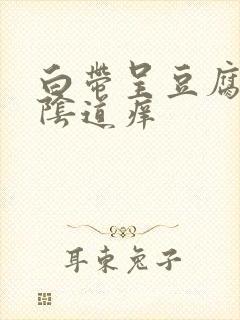 白带呈豆腐
陰道痒
耳東兔子